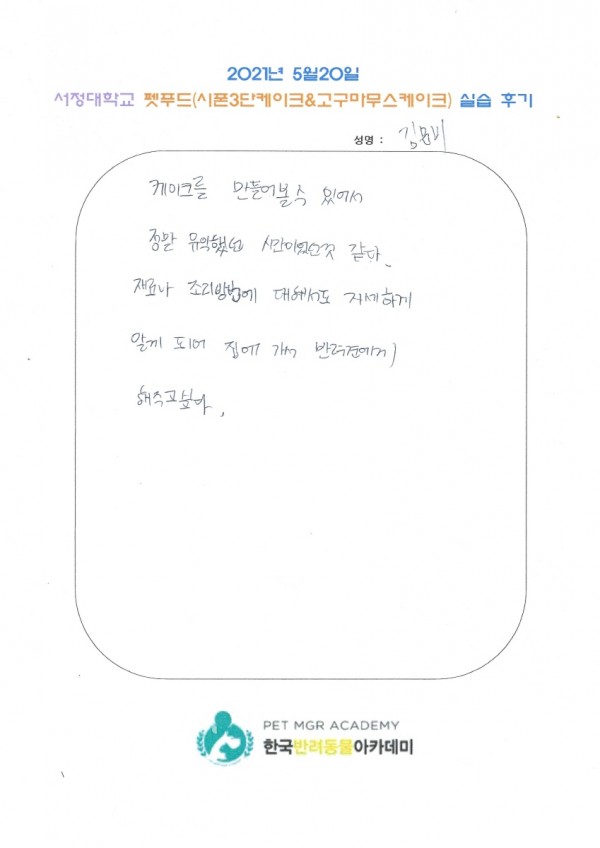 2021년 5월20일
서정대학교 펫푸드(시폰3단케이크&고구마무스케이크) 실습 후기
성명 : 김
케이크를 만들어볼 수 있어서
정말 유익했던 시간이었던것 같다.
재료나 조리방법에 대해서도 자세하게
알게 되어 집에 가서 반려견에게
해주고싶다.
PET MGR ACADEMY
한국반려동물아카데미